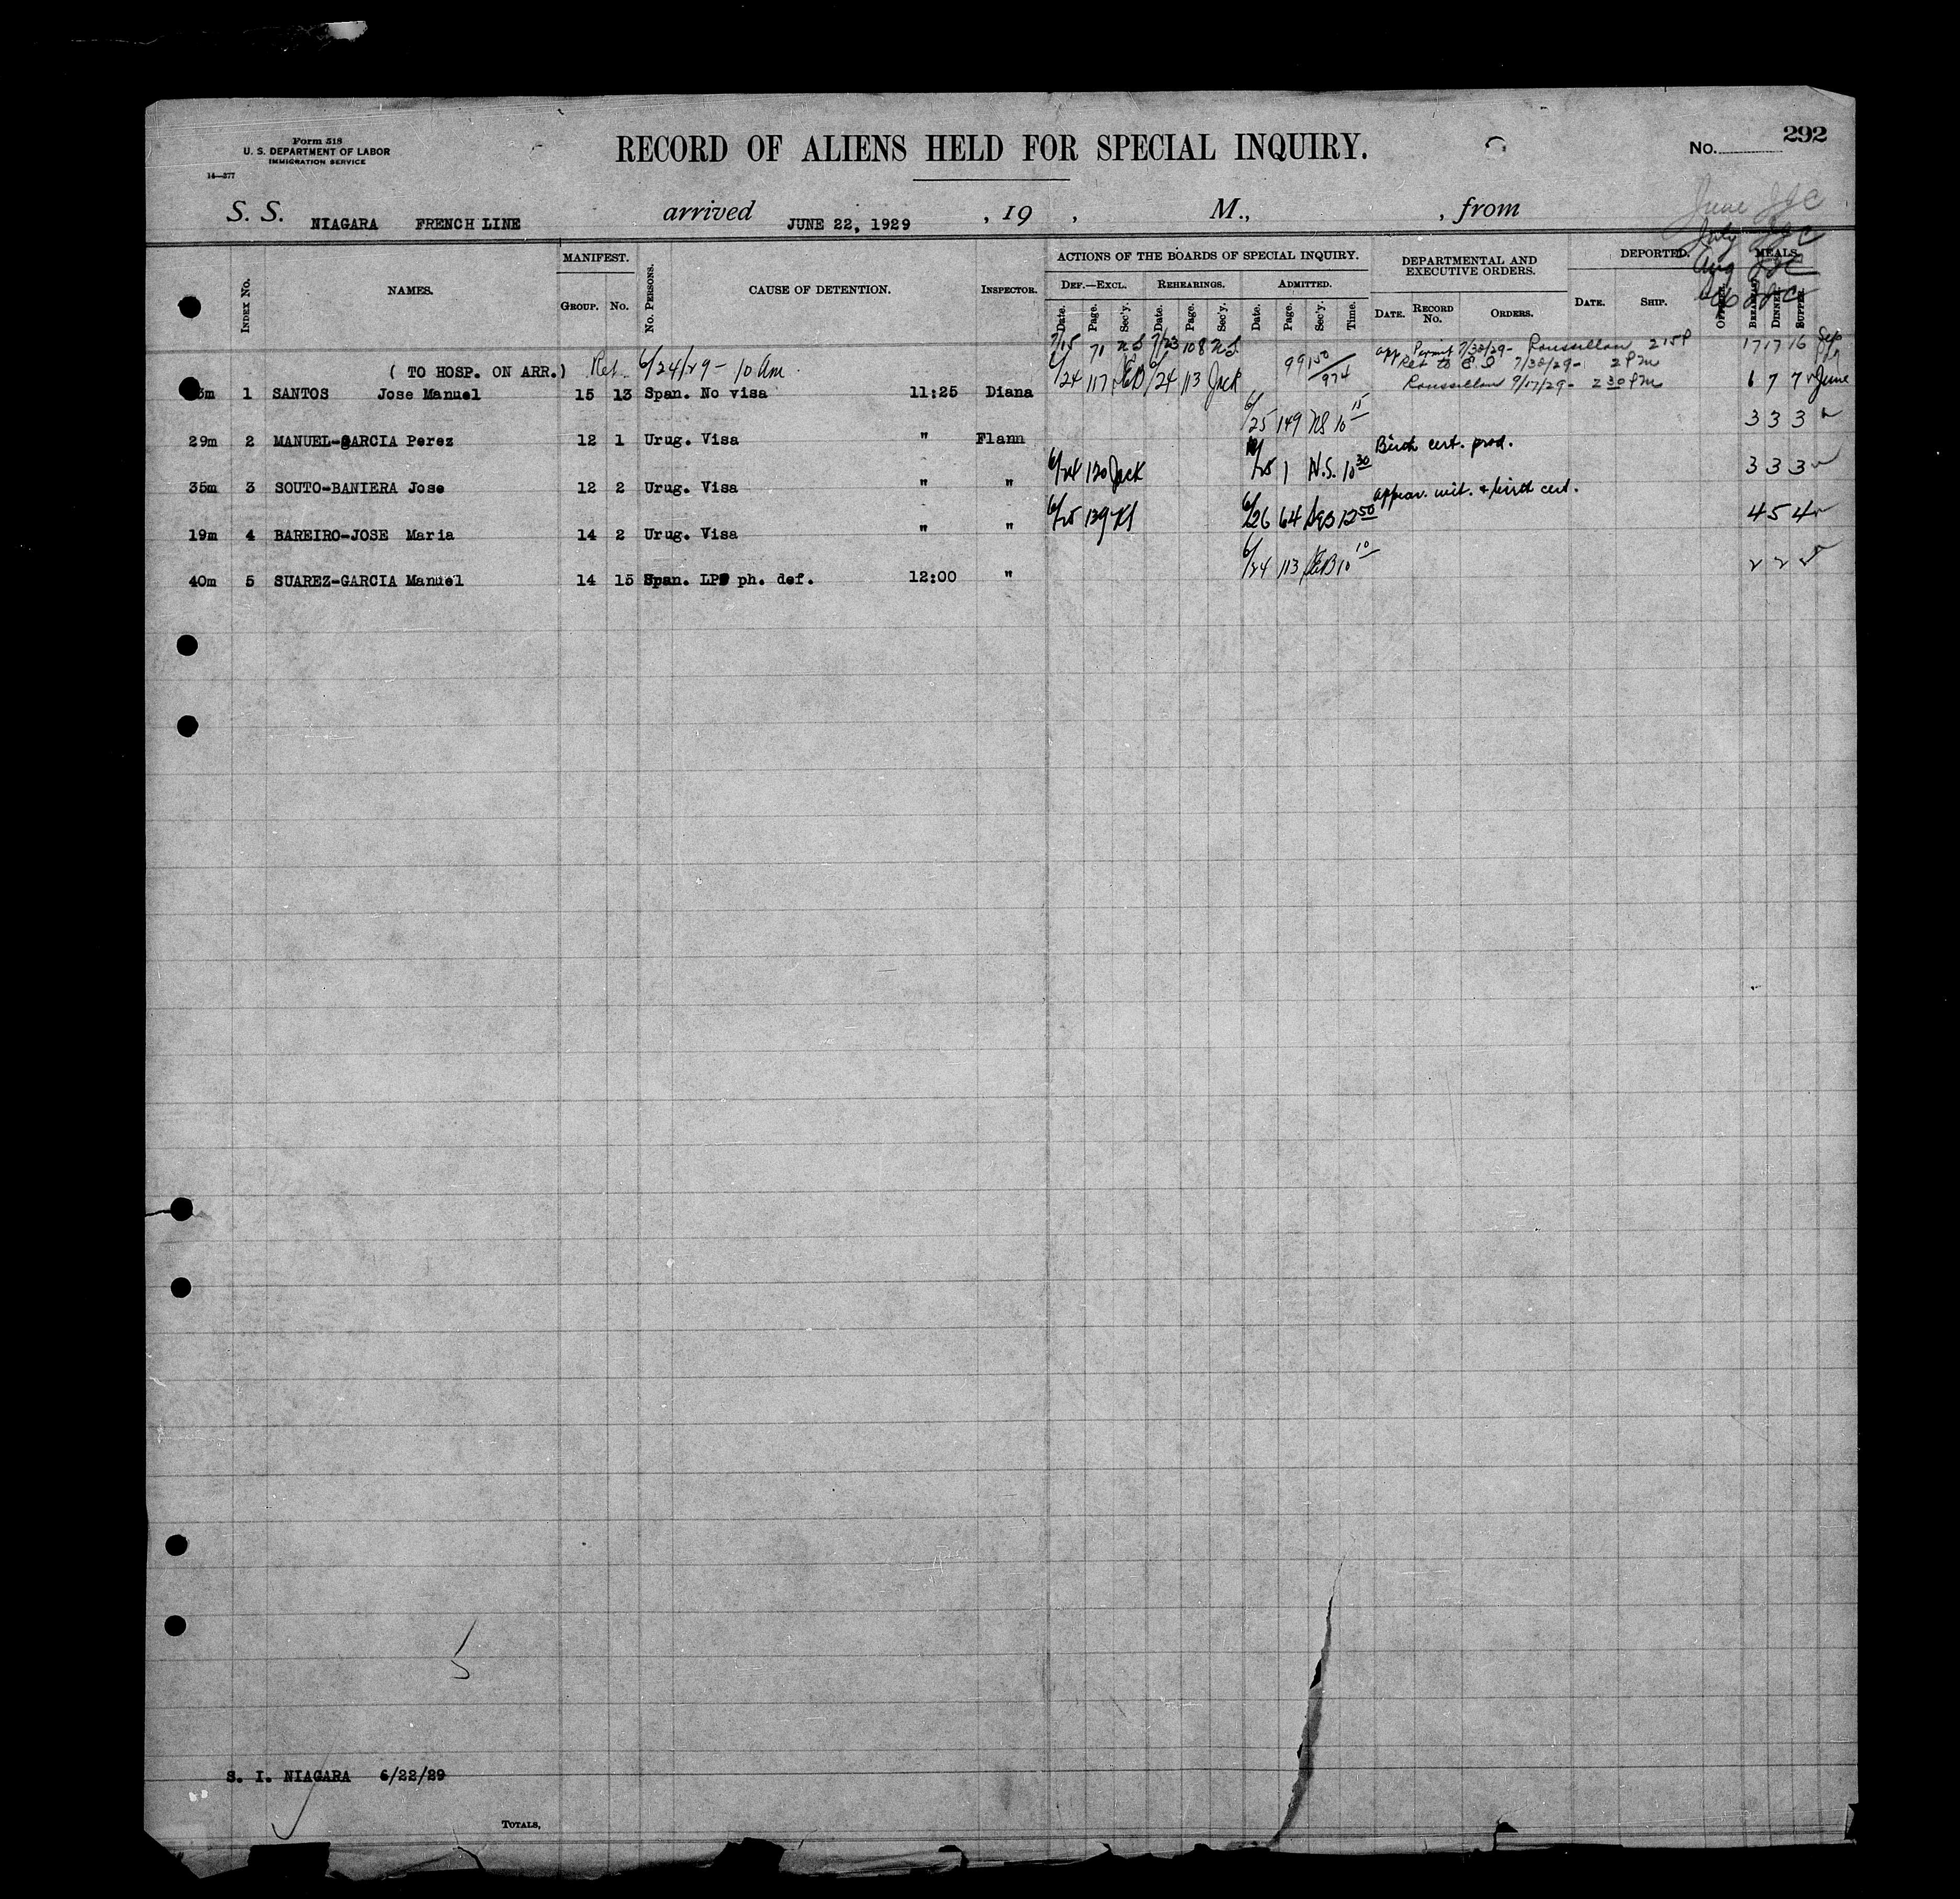 Form 518
U. S. DEPARTMENT OF LABOR
IMMIGRATION SERVICE
14—377
RECORD OF ALIENS HELD FOR SPECIAL INQUIRY.
No. 292
S. S. NIAGARA FRENCH LINE arrived JUNE 22, 1929 , 19 , M., , from
June JJC
July JJC
Aug JJC
INDEX No.
NAMES.
MANIFEST.
GROUP. No.
No. PERSONS.
CAUSE OF DETENTION.
INSPECTOR.
ACTIONS OF THE BOARDS OF SPECIAL INQUIRY.
DEF.—EXCL. REHEARINGS. ADMITTED.
Date. Page. Sec'y. Date. Page. Sec'y. Date. Page. Sec'y. Time.
DEPARTMENTAL AND EXECUTIVE ORDERS.
DATE. RECORD No. ORDERS.
DEPORTED.
DATE. SHIP.
MEALS.
BREAKFAST DINNER SUPPER
7/15 71 N.S. 7/23 108 N.S. app. Permit 7/30/29- Roussillon 2 15 P 17 17 16
( TO HOSP. ON ARR.) Ret. 6/24/29 - 10 am. 99150/974 Ret to E. I 7/30/29- 2 P m
6/24 117 6/24 113 Jack Roussillon 9/17/29- 2 30 P m 6 7 7 June
1 SANTOS Jose Manuel 15 13 Span. No visa 11:25 Diana
6/25 149 NS 10 15 3 3 3
29m 2 MANUEL-GARCIA Perez 12 1 Urug. Visa " Flann
Birth cert. prod.
6/24 120 Jack 6/25 1 N.S. 10 30 3 3 3
35m 3 SOUTO-BANIERA Jose 12 2 Urug. Visa " "
appear. wit. & birth cert.
6/25 139 6/26 64 12 50 4 5 4
19m 4 BAREIRO-JOSE Maria 14 2 Urug. Visa " "
6/24 113 10 10 2 2 2
40m 5 SUAREZ-GARCIA Manuel 14 15 Span. LPC ph. def. 12:00 "
5
S. I. NIAGARA 6/22/29
TOTALS,